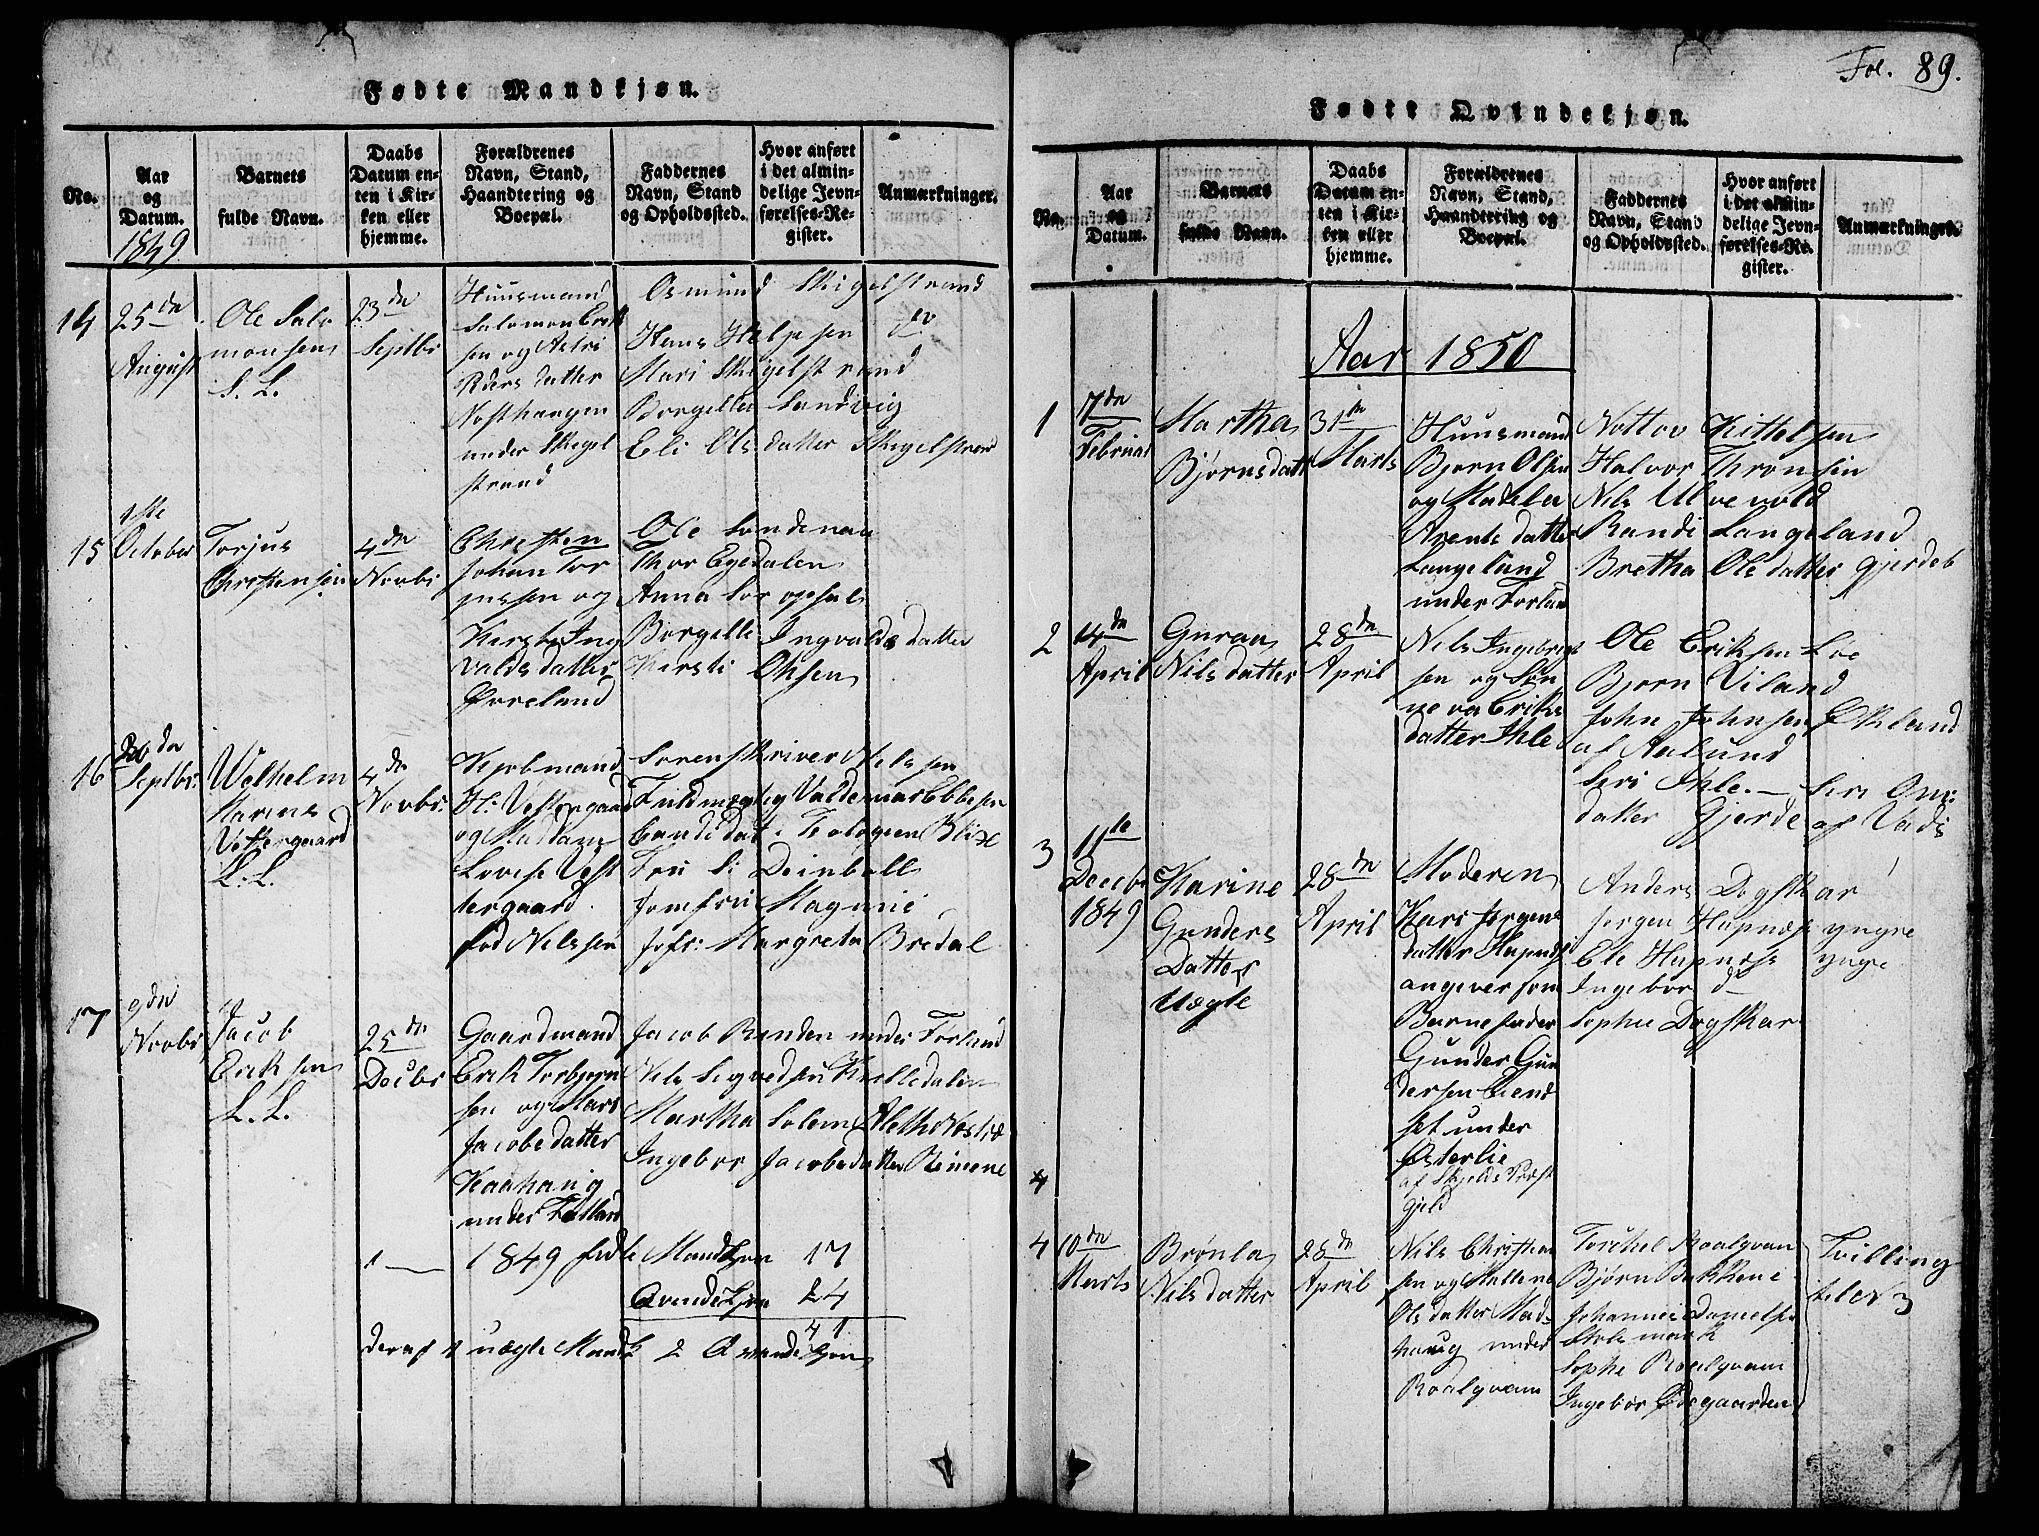 Fødte Mandkjøn.
No.
Aar og Datum.
Barnets fulde Navn.
Daabs Datum enten i Kirken eller hjemme.
Forældrenes Navn, Stand, Haandtering og Boepæl.
Faddernes Navn, Stand og Opholdssted.
Hvor anført i det almindelige Jevnførelses-Register.
Anmærkninger.
1849
14
25de
August
Ole Salo
monsen
23de
Septbr
Huusmand
Salomon Erik
sen og Astri
datter
under Skigel
strand
Osmund Skigelstrand
Hans
Mari Skigelstrand
Borgille Sandvig
Eli Olsdatter Skigelstrand
15
1ste
October
Torjus
Christensen
4de
Novbr
Christen
Johan Tor
jussen og
Kirsti Ing
valdsdatter
Ole Sondenaa
Thor Egedalen
Anna
Borgille Ingvaldsdatter
Kirsti Olsen
16
Septbr.
Welhelm
Vestergaard
L. L.
4de
Novbr.
Kjobmand
H. Vestergaard
og Madam
Lovise Vest
tergaard
fød Nilssen
Sorenskriver Nilssen
Fuldmægtig Valdemar Ebbesen
Candidat i Teologien Blix
Fru S. Deinboll
Jomfru Magnine
Jofr: Margreta Bredal
17
9de
Novbr
Jacob
Eriksen
L. L.
25de
Decbr
Gaardmand
Erik Torbjørn
sen og Mari
Jacobsdatter
under
Jacob Rinden under Forland
Nils Sigvedsen
Martha Solem
Ingebor Jacobsdatter
1849 fødte Mandkjøn 17
Qvindekjøn 24
41
deraf 1 uægte Mandk 2 Qvindekjøn
Fol. 89.
Fødte Qvindekjøn.
No.
Aar og Datum.
Barnets fulde Navn.
Daabs Datum enten i Kirken eller hjemme.
Forældrenes Navn, Stand, Haandtering og Boepæl.
Faddernes Navn, Stand og Opholdssted.
Hvor anført i det almindelige Jevnførelses-Register.
Anmærkninger.
Aar 1850
1
17de
Februar
Martha
Bjørnsdatter
31te
Marts
Huusmand
Bjorn Olsen
og
Arentsdatter
Langeland
under Forland
Nottov Kittelsen
Halvor Thronsen
Nils Ulvevold
Randi Langeland
Bretha Olsdatter
2
14de
April
Guran
Nilsdatter
28de
April
Nils Ingebrigt
sen og Søn
neva Eriks
datter Ihle
Ole Eriksen Loe
Bjorn Viland
John Johnsen Ekland
af Aalund
Siri Ihle.
datter Gjerde af Vads
3
11te
Decbr
1849
Karine
Gunders
Datter
Uægte
28de
April
Moderen
Kari Jørgens
datter Hupnæs
angiver som
Barnefader
Gunder Gun
dersen
under
Østerlie
af Skjolds Præst
gjeld
Anders Dogskar
Jørgen Hupnæs yngre
Eli Hupnæs yngre
Ingebor do
Sophie Dogskar
4
4
10de
Marts
Brønla
Nilsdatter
28de
April
Nils Christian
sen og Mallene
Olsdatter Mad
haug under
Roalqvam
Torkel Roalqvam
Bjørn Bakkene
Johannes Danielsen
Stolsmark
Sophe Roalqvam
Ingebor Ødegaarden
Tvilling